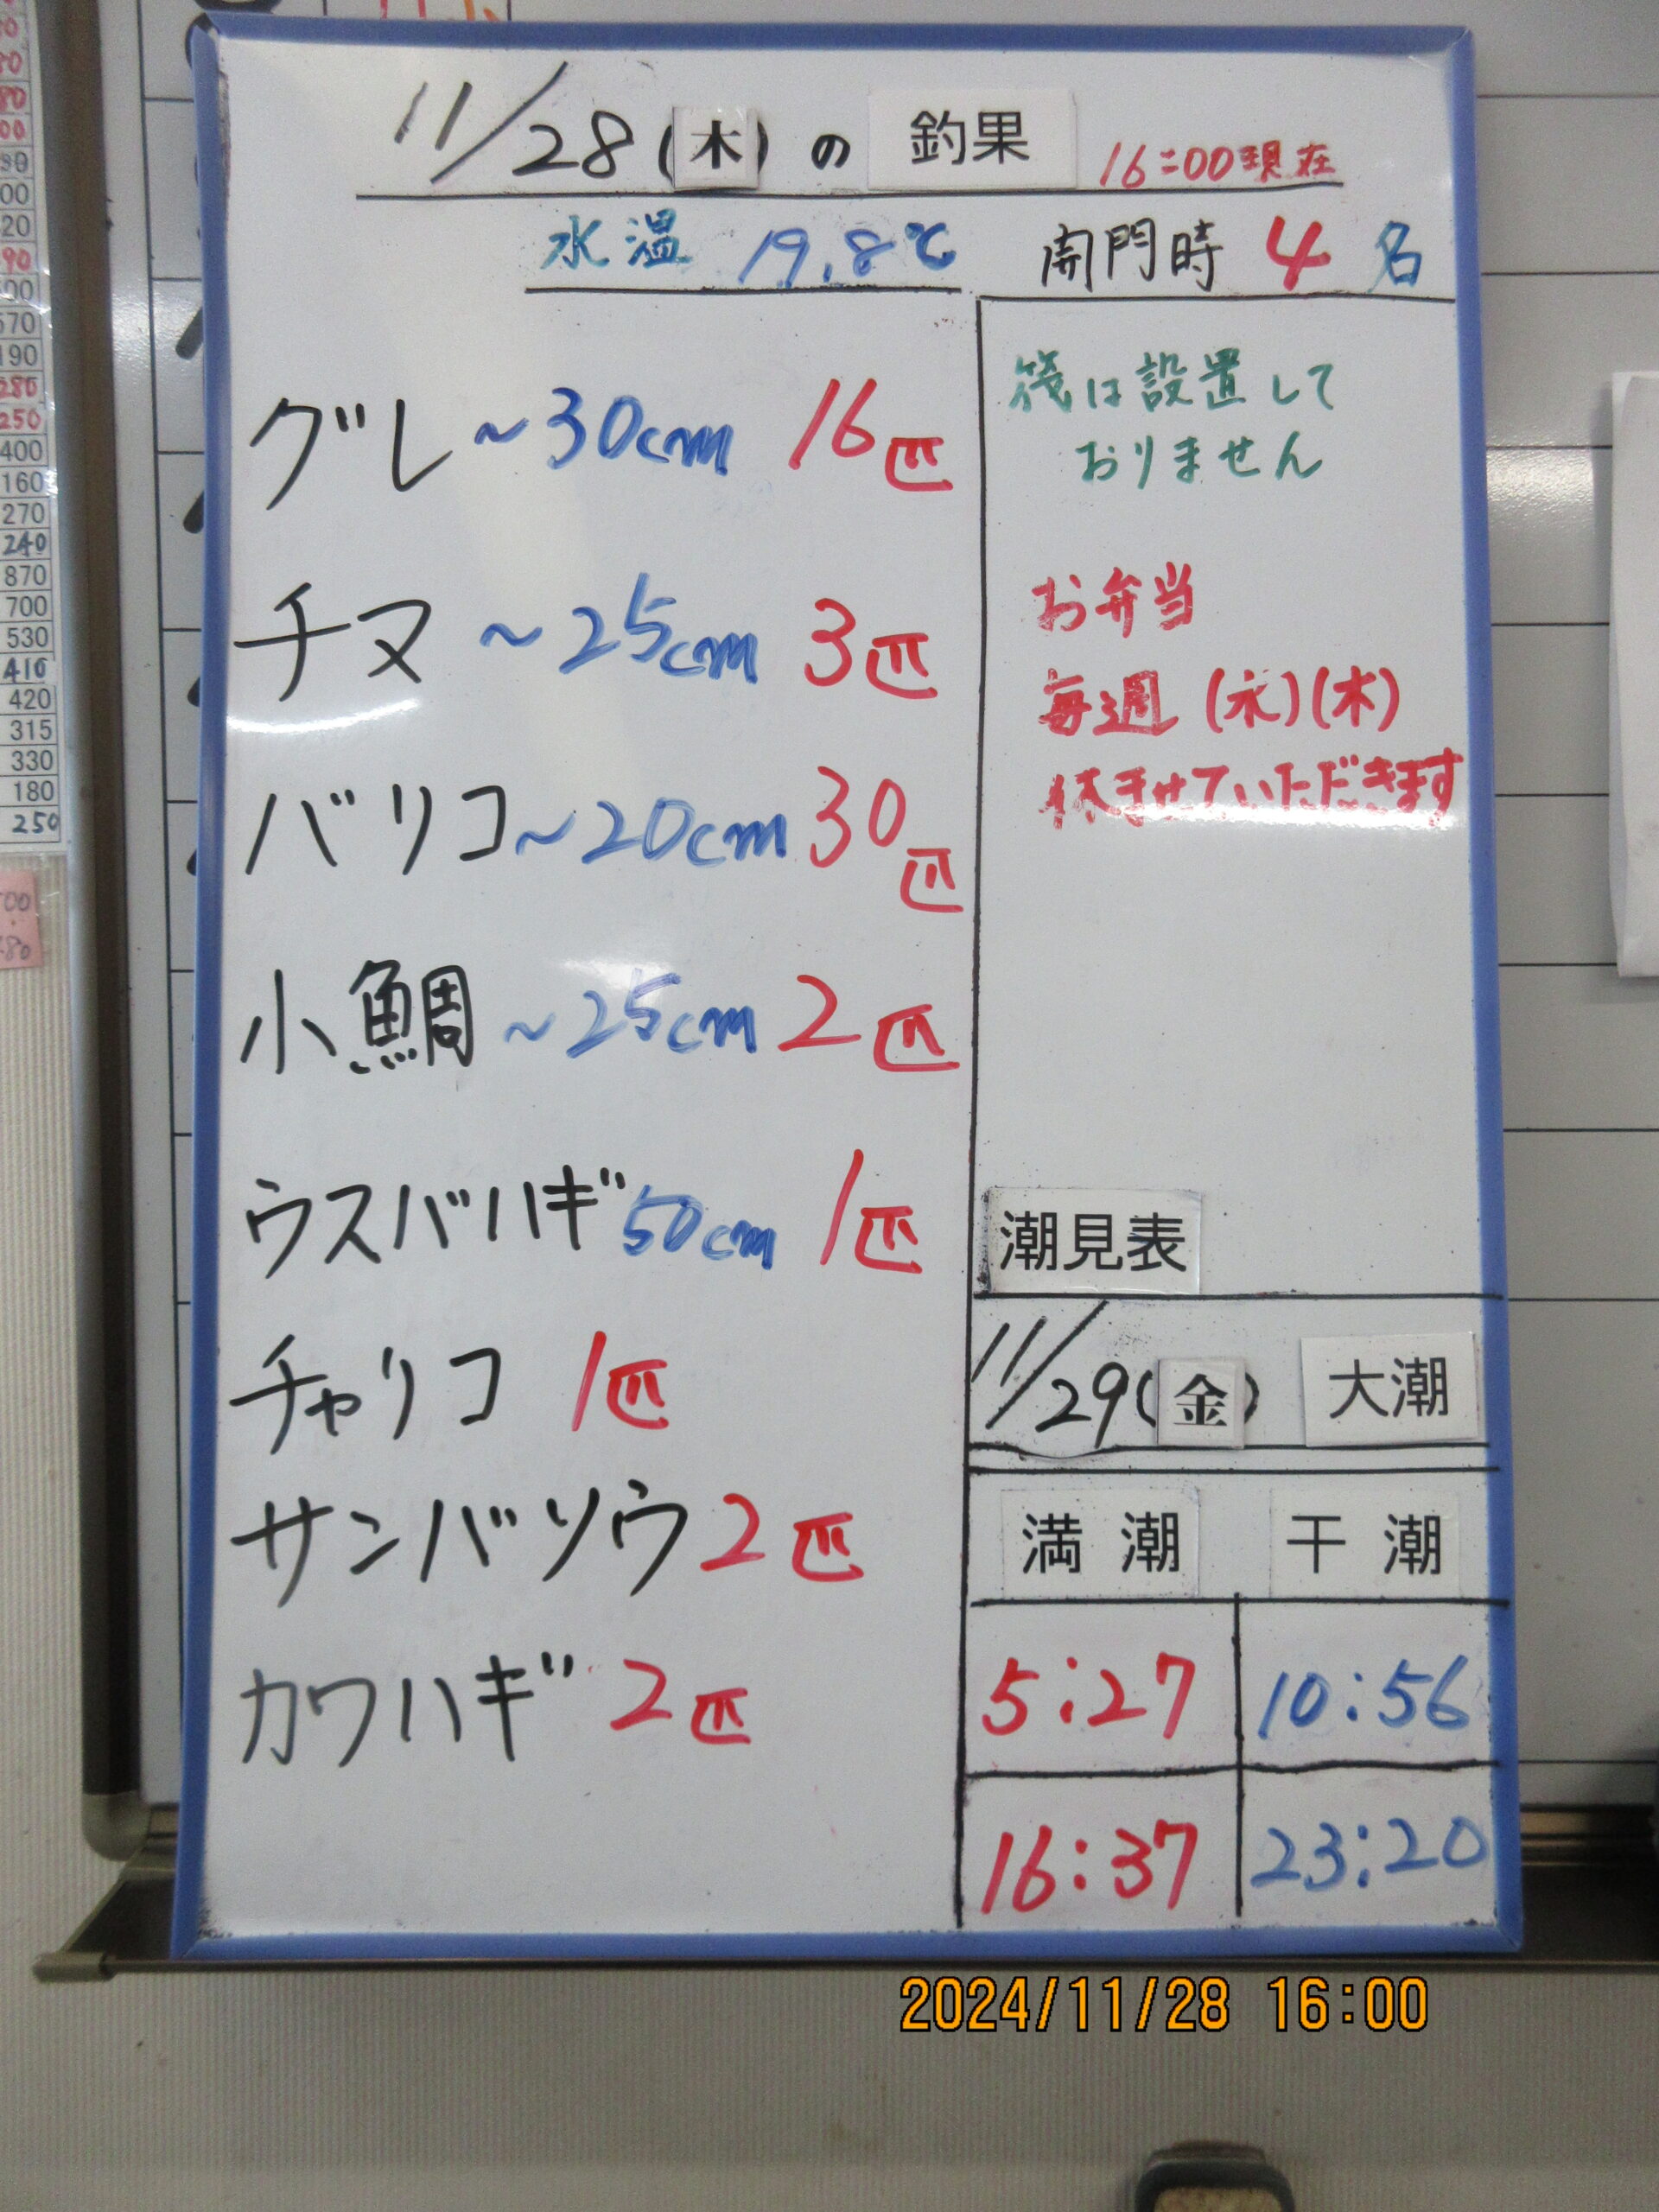 11/28(木)の 釣果 16:00現在
水温 19.8℃ 開門時 4名
グレ ~30cm 16匹
チヌ ~25cm 3匹
バリコ ~20cm 30匹
小鯛 ~25cm 2匹
ウスバハギ 50cm 1匹
チャリコ 1匹
サンバソウ 2匹
カワハギ 2匹
筏は設置して
おりません
お弁当
毎週(水)(木)
休ませていただきます
潮見表
11/29(金) 大潮
満潮 干潮
5:27 10:56
16:37 23:20
2024/11/28 16:00
400
160
270
240
870
700
530
410
420
315
330
180
250